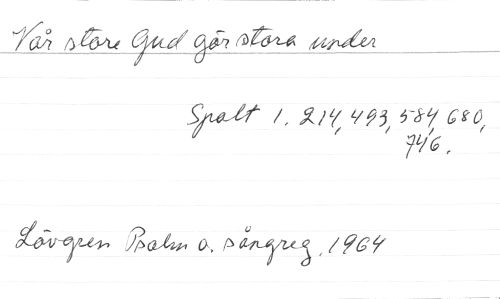 Vår store Gud gör stora under
Spalt 1. 214, 493, 584, 680,
746.
Lövgren Psalm o. sångreg. 1964